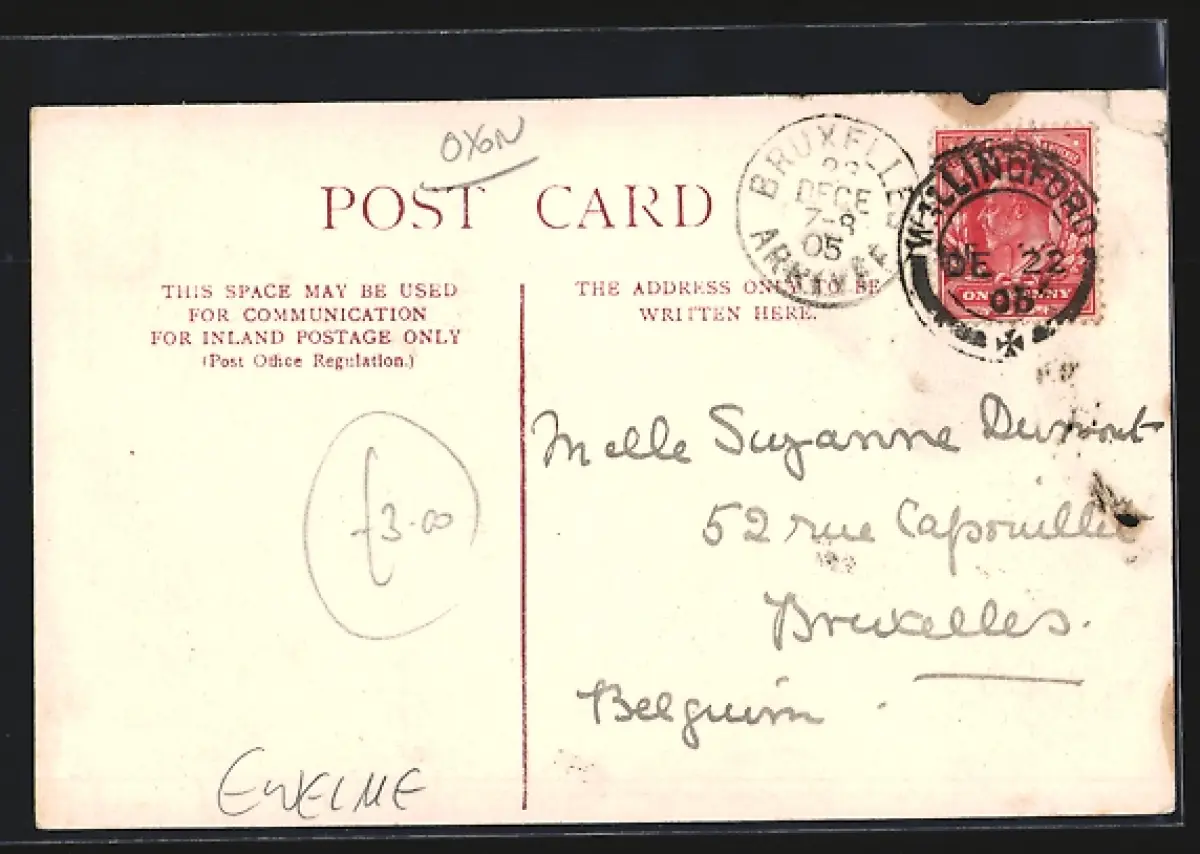 OXON
POST CARD
THIS SPACE MAY BE USED
FOR COMMUNICATION
FOR INLAND POSTAGE ONLY
(Post Office Regulation.)
THE ADDRESS ONLY TO BE
WRITTEN HERE.
BRUXELLES
DECE
7-8
05
ARRIVEE
WALLINGFORD
DE 22
05
ONE PENNY
Melle Suzanne Dumont
52 rue Capouillet
Bruxelles.
Belguim
£3-00
EWELME